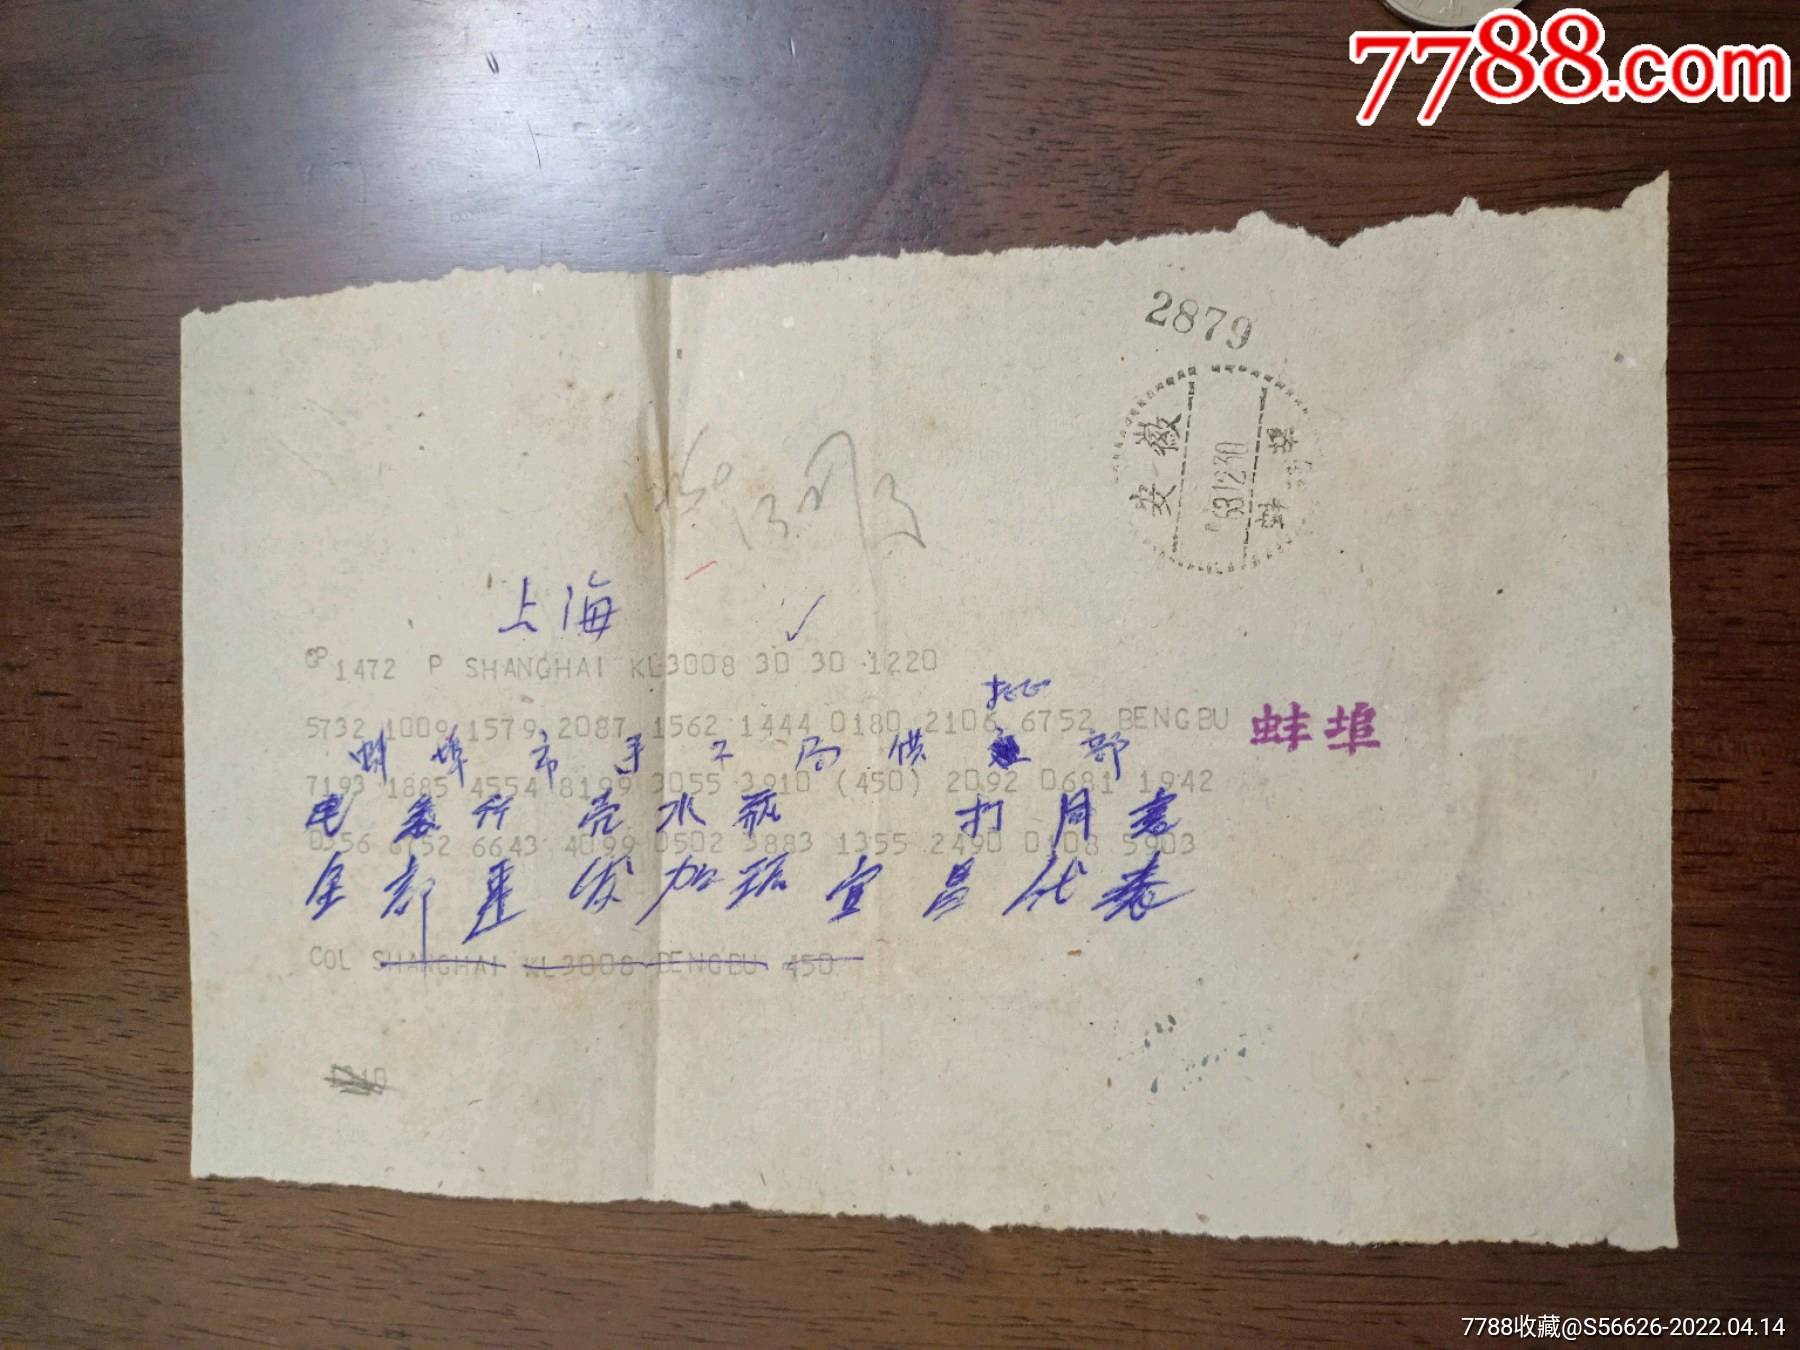 7788.com
2879
安徽
63.12.30
蚌埠
上海
1472 P SHANGHAI KL3008 30 30 1220
批
5732 1009 1579 2087 1562 1444 0180 2106 6752 BENGBU 蚌埠
蚌埠市手工局供 部
7193 1885 4554 8199 3055 3910 (450) 2092 0681 1942
电 竹壳水瓶 打同意
0356 6752 6643 4099 0502 3883 1355 2490 0108 5903
全部 发加 宜昌代表
COL SHANGHAI KL3008 BENGBU 450
7788收藏@S56626-2022.04.14